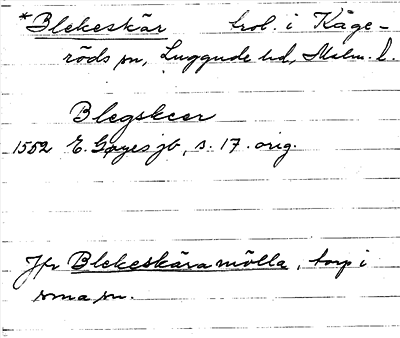 *Blekeskär trol. i Kåge-
röds sn, Luggude hd, Malm. l.
Blegskeer
1552 E. Gøyes jb, s. 17. orig.
Jfr Blekeskära mölla, torp i
sma sn.